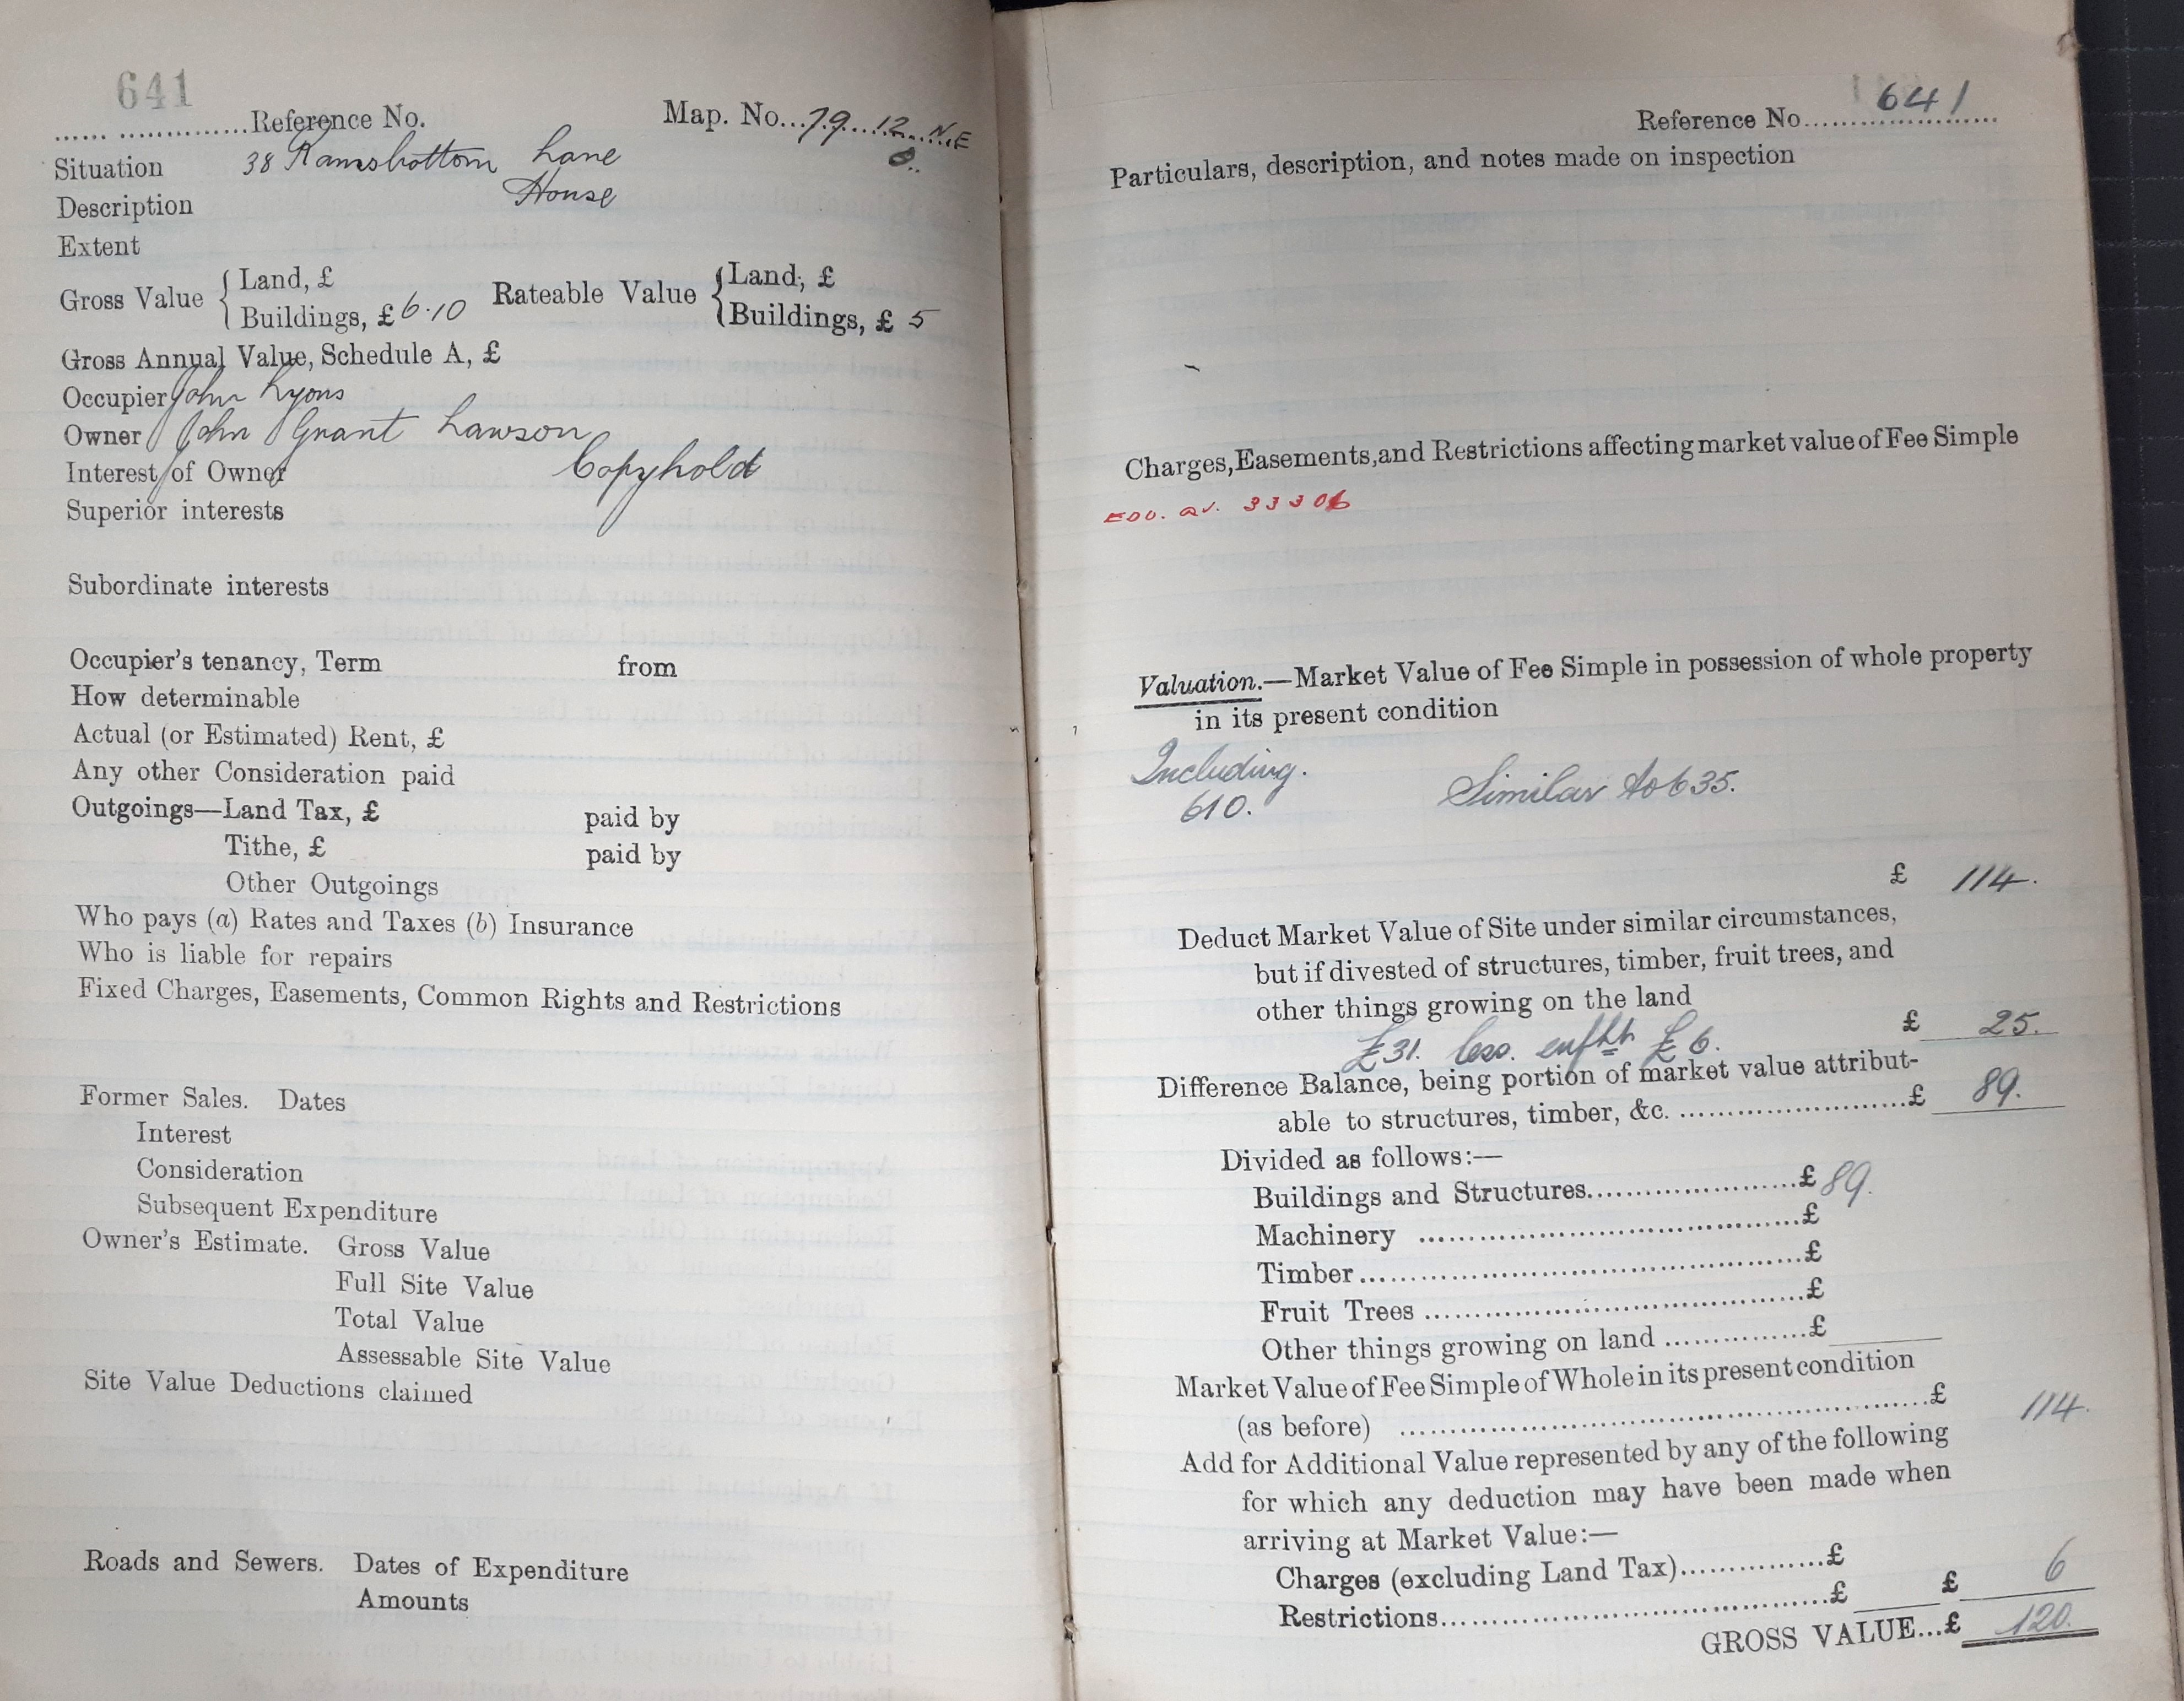 641
...... ..............Reference No. Map. No...79...12...N.E
8..
Situation 38 Ramsbottom Lane
Description House
Extent
Gross Value { Land, £ Rateable Value { Land, £
Buildings, £ 6.10 Buildings, £ 5
Gross Annual Value, Schedule A, £
Occupier John Lyons
Owner John Grant Lawson
Interest of Owner Copyhold
Superior interests
Subordinate interests
Occupier's tenancy, Term from
How determinable
Actual (or Estimated) Rent, £
Any other Consideration paid
Outgoings—Land Tax, £ paid by
Tithe, £ paid by
Other Outgoings
Who pays (a) Rates and Taxes (b) Insurance
Who is liable for repairs
Fixed Charges, Easements, Common Rights and Restrictions
Former Sales. Dates
Interest
Consideration
Subsequent Expenditure
Owner's Estimate. Gross Value
Full Site Value
Total Value
Assessable Site Value
Site Value Deductions claimed
Roads and Sewers. Dates of Expenditure
Amounts
Reference No 641
Particulars, description, and notes made on inspection
Charges, Easements, and Restrictions affecting market value of Fee Simple
33306
Valuation.—Market Value of Fee Simple in possession of whole property
in its present condition
Including.
610. Similar to 635.
£ 114.
Deduct Market Value of Site under similar circumstances,
but if divested of structures, timber, fruit trees, and
other things growing on the land £ 25.
£31. less. enfht £6.
Difference Balance, being portion of market value attribut-
able to structures, timber, &c. ........................£ 89.
Divided as follows:—
Buildings and Structures........................£ 89.
Machinery ........................£
Timber........................£
Fruit Trees ........................£
Other things growing on land ..............£
Market Value of Fee Simple of Whole in its present condition
(as before) ........................£ 114.
Add for Additional Value represented by any of the following
for which any deduction may have been made when
arriving at Market Value:—
Charges (excluding Land Tax)...............£
Restrictions........................£ £ 6
GROSS VALUE...£ 120.